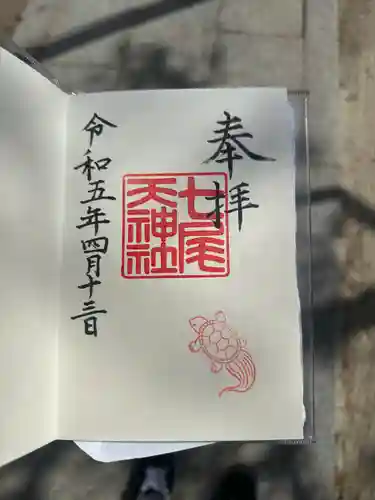 奉拝
七尾
天神社
令和五年四月十三日